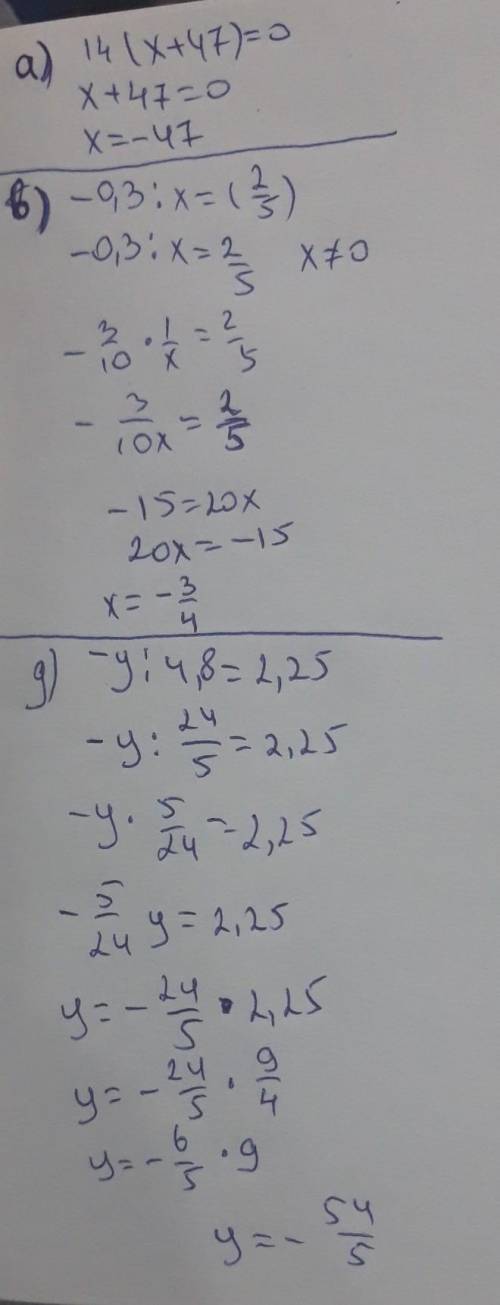 а) 14(x+47)=0
x+47=0
x=-47
в) -0,3:x=(2/5)
-0,3:x=2/5 x≠0
-3/10·1/x=2/5
-3/10x=2/5
-15=20x
20x=-15
x=-3/4
g) -y:4,8=2,25
-y:24/5=2,25
-y·5/24=2,25
-5/24 y=2,25
y=-24/5·2,25
y=-24/5·9/4
y=-6/5·9
y=-54/5